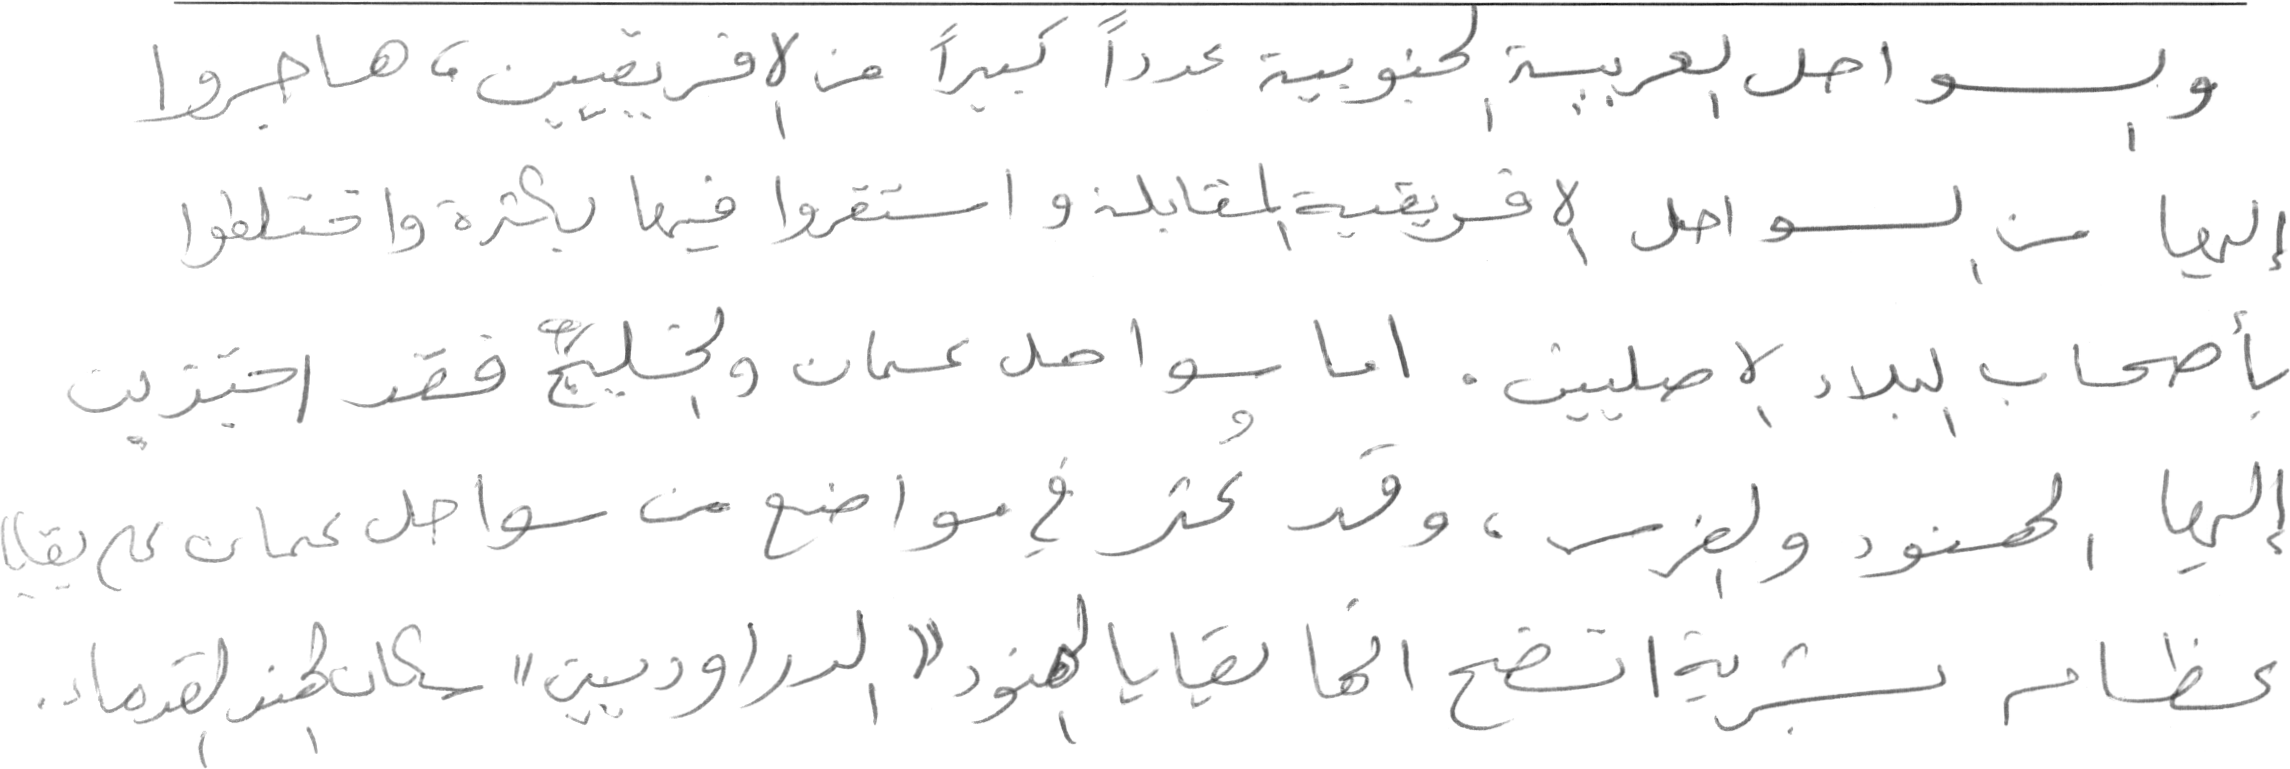 والسواحل العربية الجنوبية عدداً كبيراً من الافريقيين، هاجروا
إليها من السواحل الافريقية المقابلة واستقروا فيها بكثرة واختلطوا
بأصحاب البلاد الاصليين. اما سواحل عمان والخليج فقد اجتذبت
إليها الهنود والفرس، وقد عُثر في مواضع من سواحل عمان على بقايا
عظام بشرية اتضح انها بقايا الهنود «الدراوديين» سكان الهند القدماء.